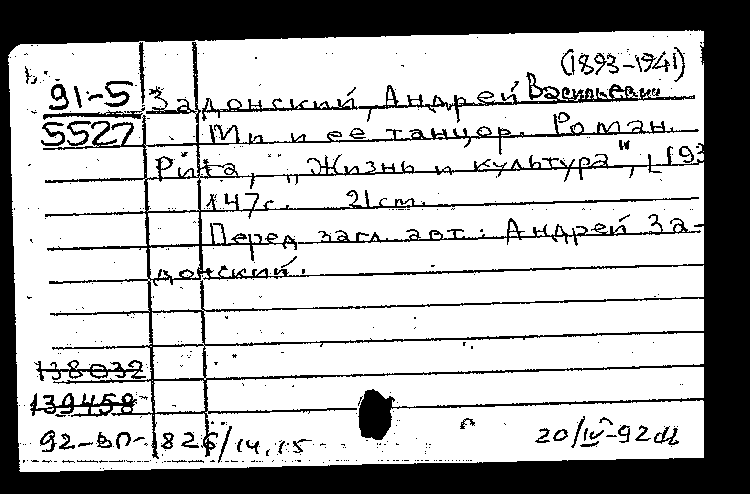 (1893-1941)
91-5 Задонский, Андрей Васильевич
5527 Ми и ее танцор. Роман.
Рига, „Жизнь и культура", [193
147с. 21см.
Перед загл. авт.: Андрей За-
донский.
138032
139458
92-ВП-1826/14,15
20/IV-92